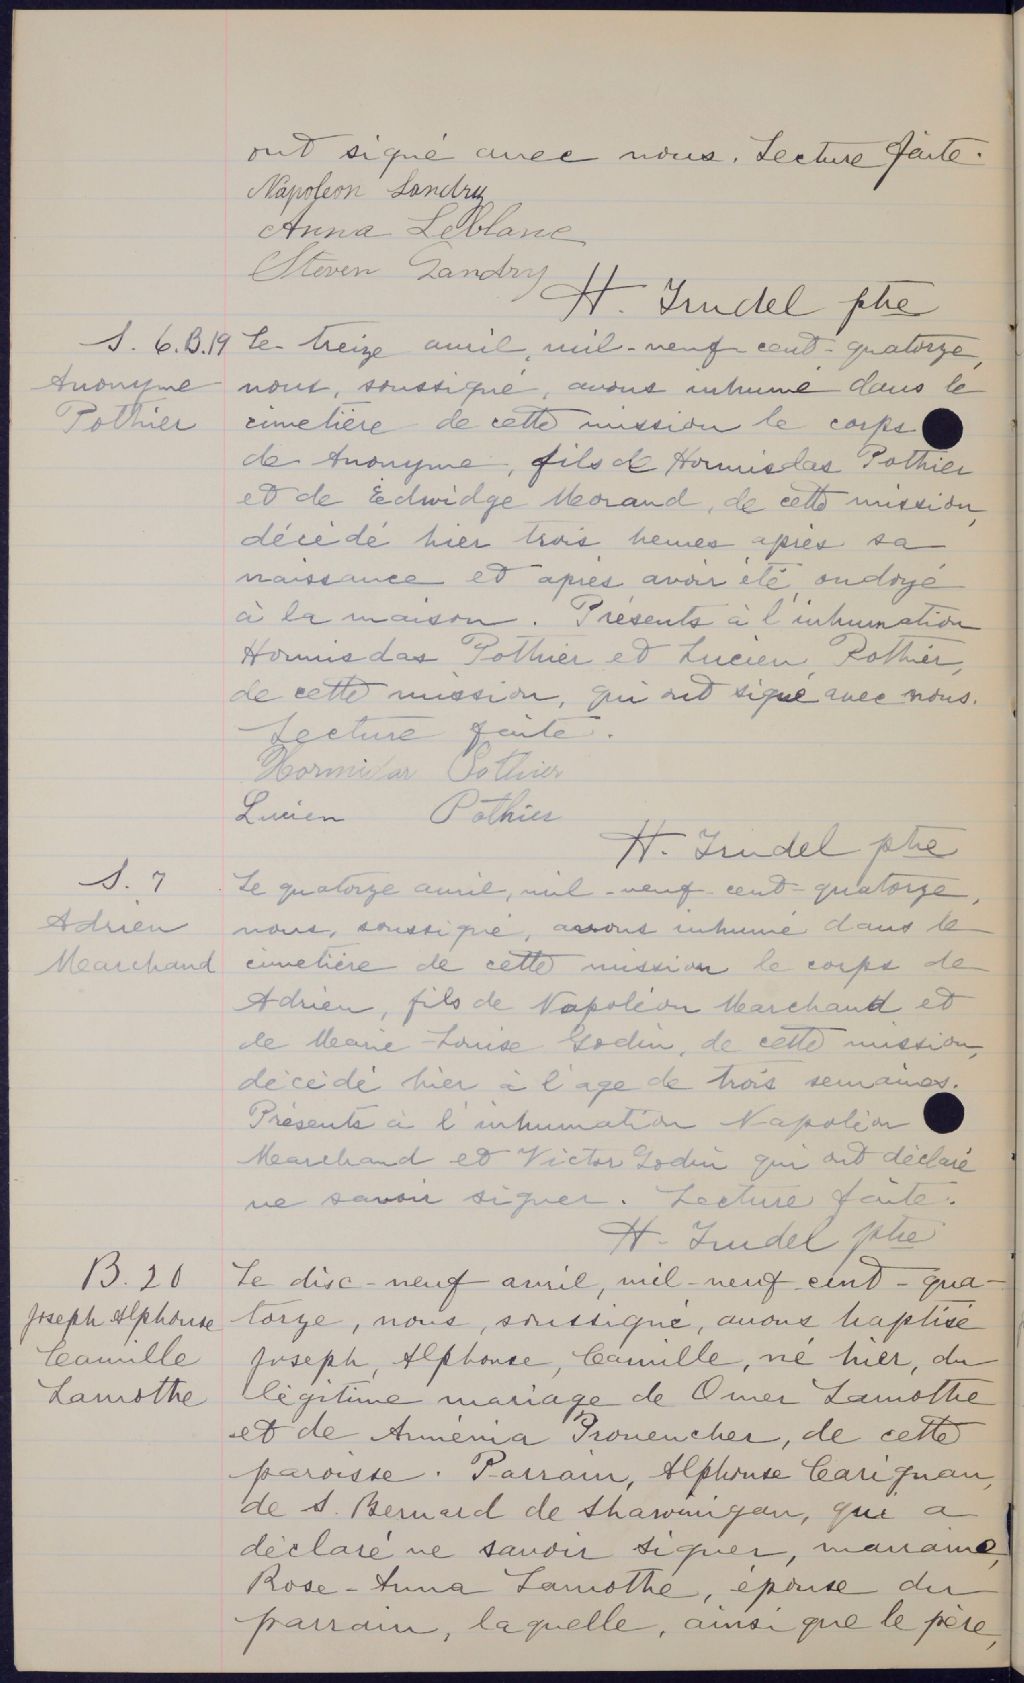 ont signé avec nous. Lecture faite.
Napoleon Landry
Anna Leblanc
Steven Landry
H. Trudel ptre
S. 6. B. 19
Anonyme
Pothier
Le treize avril, mil-neuf-cent-quatorze,
nous, soussigné, avons inhumé dans le
cimetière de cette mission le corps
de Anonyme, fils de Hormisdas Pothier
et de Edwidge Morand, de cette mission,
décédé hier trois heures après sa
naissance et après avoir été ondoyé
à la maison. Présents à l'inhumation
Hormisdas Pothier et Lucien Pothier,
de cette mission, qui ont signé avec nous.
Lecture faite.
Hormidas Pothier
Lucien Pothier
H. Trudel ptre
S. 7
Adrien
Marchand
Le quatorze avril, mil-neuf-cent-quatorze,
nous, soussigné, avons inhumé dans le
cimetière de cette mission le corps de
Adrien, fils de Napoléon Marchand et
de Marie-Louise Godin, de cette mission,
décédé hier à l'age de trois semaines.
Présents à l'inhumation Napoléon
Marchand et Victor Godin qui ont déclaré
ne savoir signer. Lecture faite.
H. Trudel ptre
B. 20
Joseph Alphonse
Camille
Lamothe
Le disc-neuf avril, mil-neuf-cent-qua-
torze, nous, soussigné, avons baptisé
Joseph, Alphonse, Camille, né hier, du
légitime mariage de Omer Lamothe
et de Arménia Provencher, de cette
paroisse. Parrain, Alphonse Carignan,
de S. Bernard de Shawinigan, qui a
déclaré ne savoir signer, marraine,
Rose-Anna Lamothe, épouse du
parrain, laquelle, ainsi que le père,